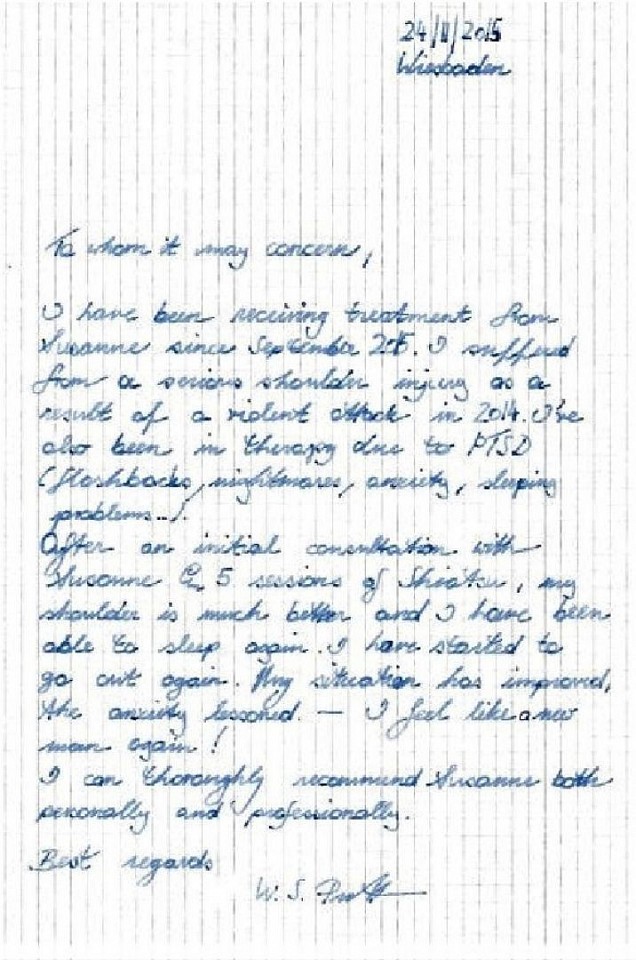 24/11/2015
Wiesbaden
To whom it may concern,
I have been receiving treatment from
Susanne since September 2015. I suffered
from a serious shoulder injury as a
result of a violent attack in 2014. I've
also been in therapy due to PTSD
(flashbacks, nightmares, anxiety, sleeping
problems...).
After an initial consultation with
Susanne & 5 sessions of Shiatsu, my
shoulder is much better and I have been
able to sleep again. I have started to
go out again. My situation has improved,
the anxiety lessoned. — I feel like a new
man again!
I can thoroughly recommend Susanne both
personally and professionally.
Best regards
W. S.